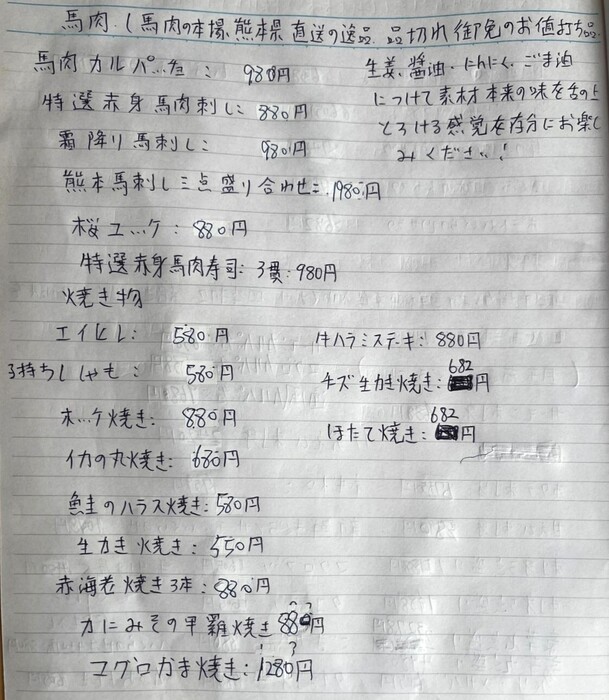 馬肉.(馬肉の本場、熊本県 直送の逸品. 品切れ 御免のお値打ち品.
馬肉カルパッチョ: 980円
特選赤身馬肉刺し: 880円
霜降り馬刺し: 980円
熊本馬刺し三点盛り合わせ: 1980円
生姜、醤油・にんにく、ごま油
につけて素材本来の味を舌の上
とろける感覚を存分にお楽し
みください!
桜ユッケ: 880円
特選赤身馬肉寿司: 3貫: 980円
焼き物
エイヒレ: 580円
子持ちししゃも: 580円
ホッケ焼き: 880円
イカの丸焼き: 680円
鮭のハラス焼き: 580円
生かき焼き: 550円
赤海老焼き3本: 880円
カニみその甲羅焼き 880円
マグロかま焼き: 1280円
牛ハラミステーキ: 880円
チズ生かき焼き: 682円
ほたて焼き: 682円